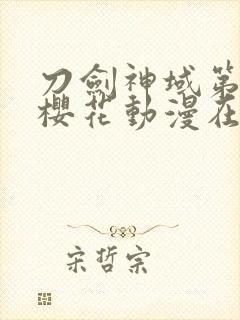 刀劍神域第
櫻花動漫在
宋哲宗